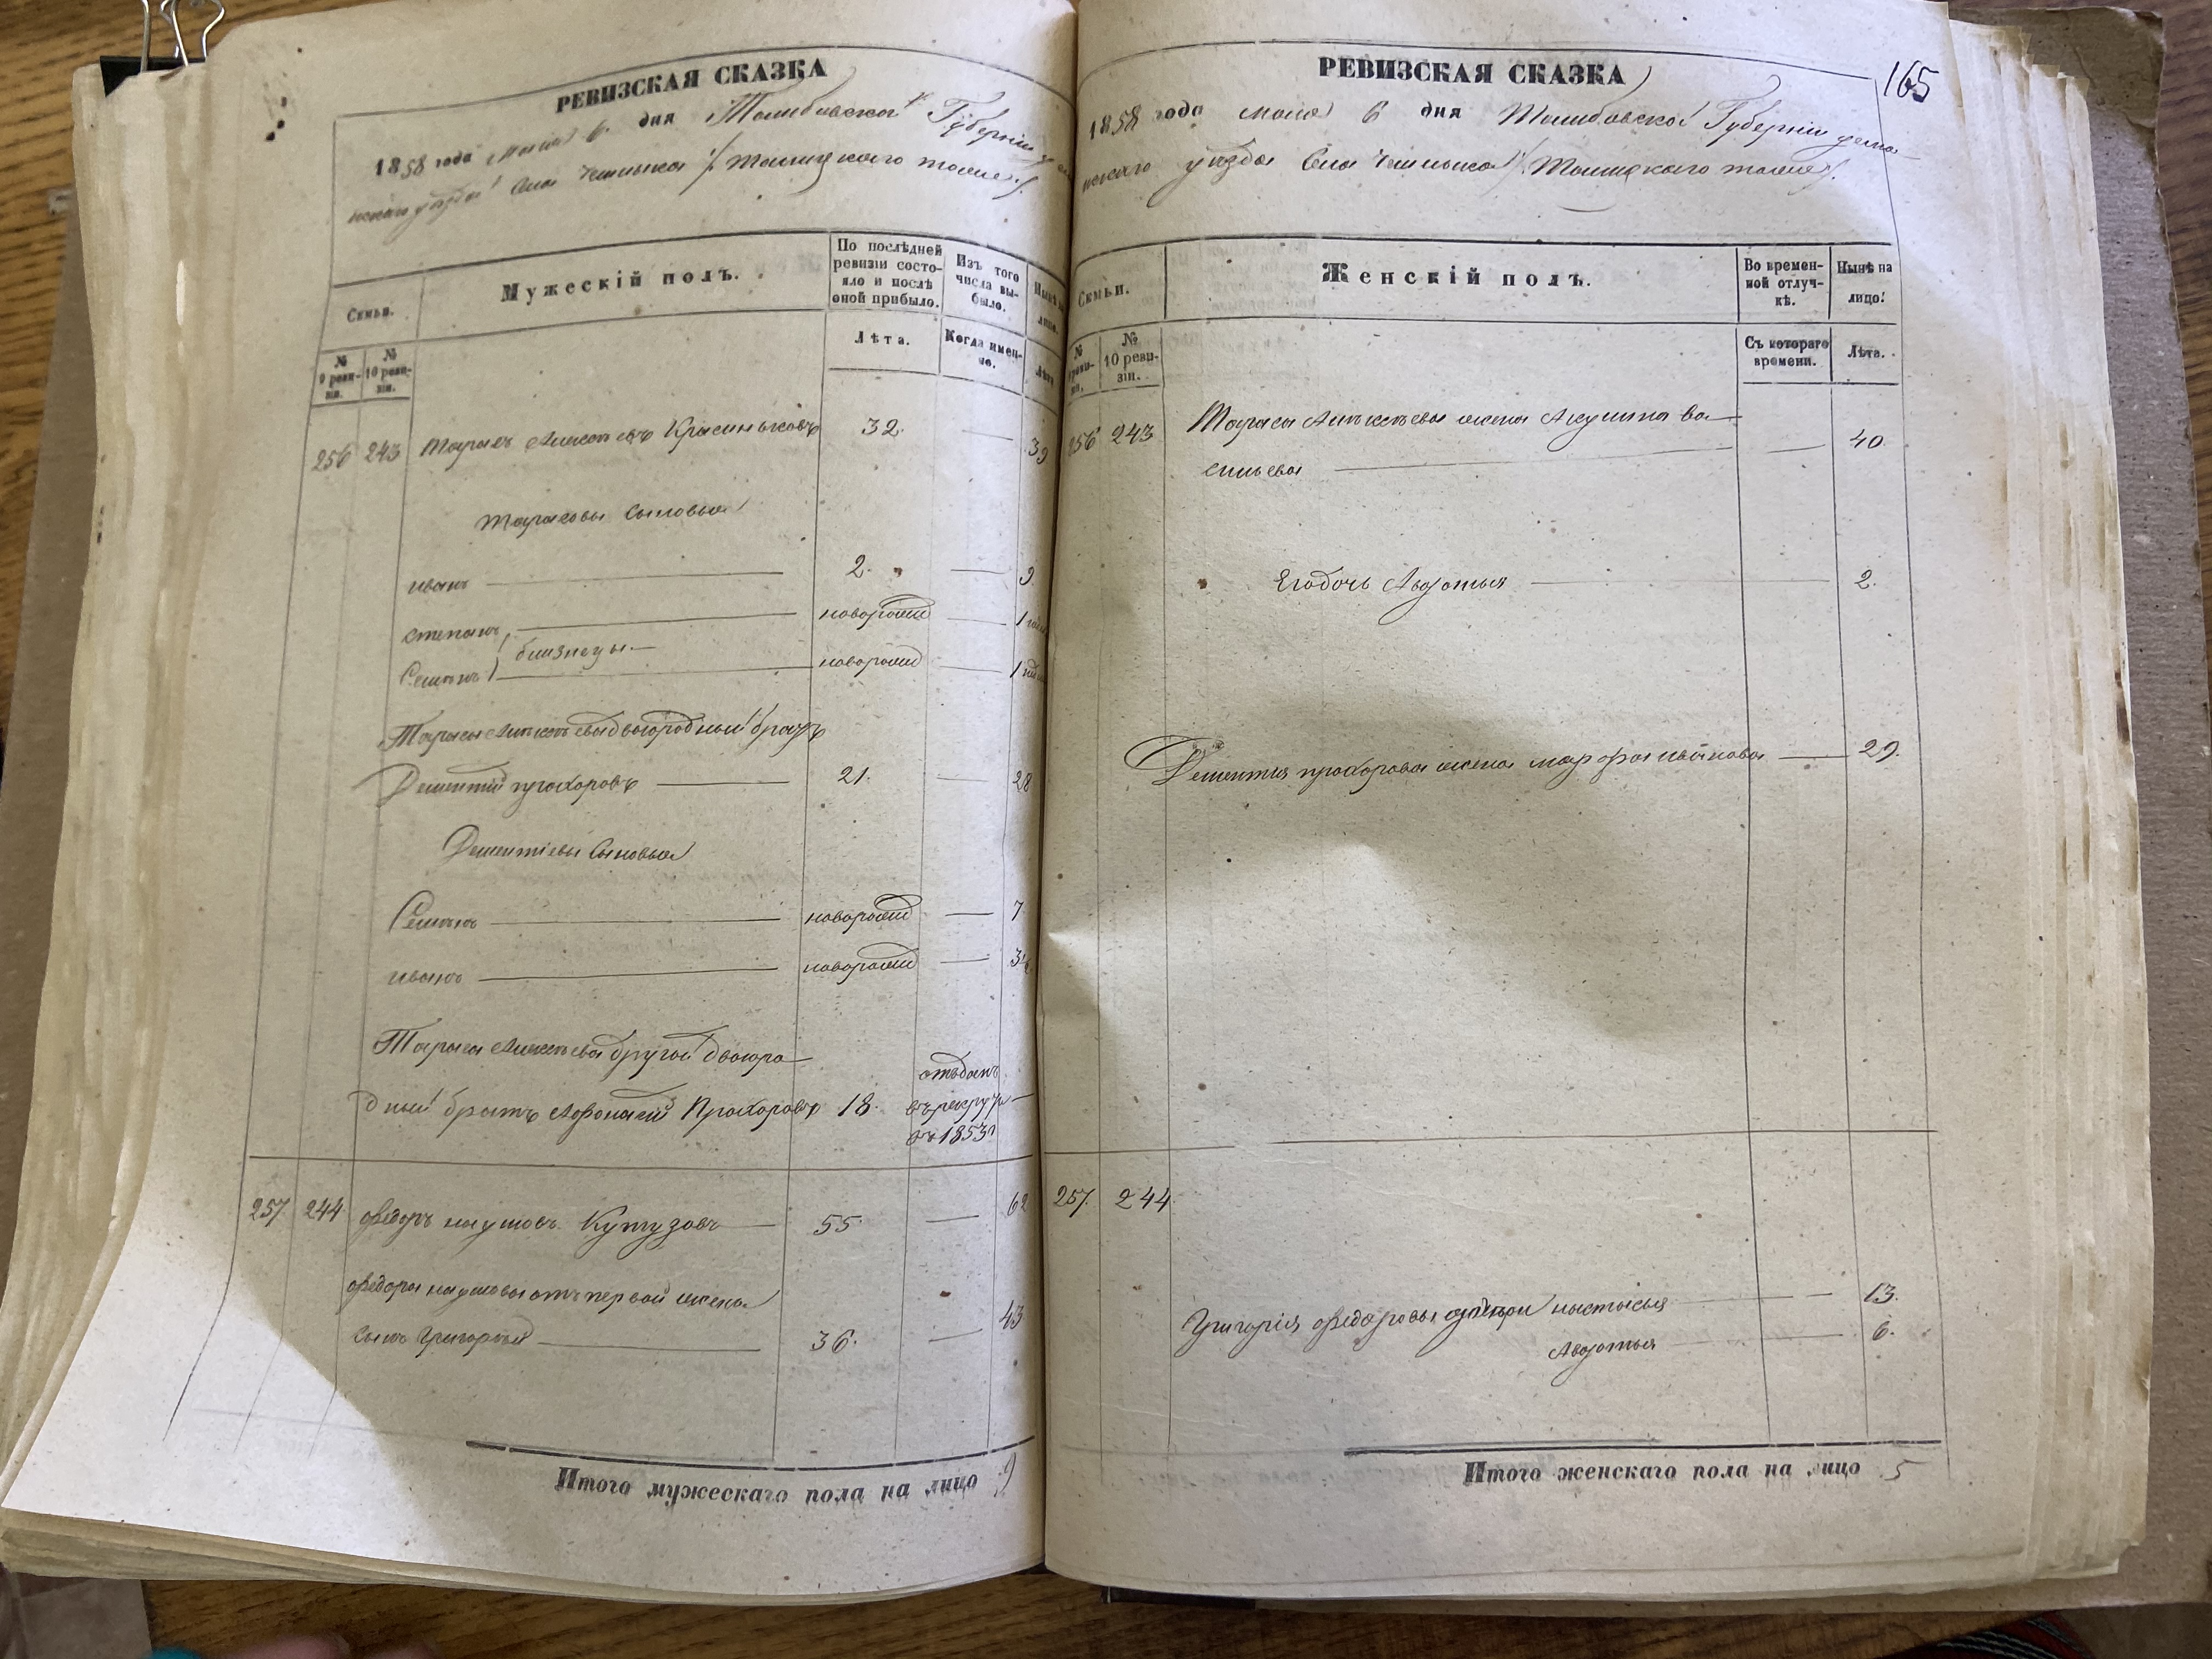 РЕВИЗСКАЯ СКАЗКА
1858 года мая 6 дня Тамбовской Губерніи усма
нскаго уѣзда Села Чемлыка /: Талицкаго тожъ:/
Семьи.
Мужескій полъ.
По послѣдней ревизіи состояло и послѣ оной прибыло.
Изъ того числа выбыло.
Нынѣ на лицо.
№ 9 ревизіи.
№ 10 ревизіи.
Лѣта.
Когда именно.
Лѣта
256 243 Тарасъ Алексѣевъ Красниковъ 32. — 39
Тарасовы Сыновья
иванъ — 2. — 9
степанъ — новорожд — 1
близнецы. —
Семенъ — новорожд — 1
Тараса Алексѣева двоюродный братъ
Дементій прохоровъ — 21. — 28
Дементіевы Сыновья
Семенъ — новорожд — 7
иванъ — новорожд — 3
Тараса Алексѣева другой двоюро
дный братъ Афонасий Прохоровъ 18.
отъданъ
въ рекруты —
въ 1853
257 244 федоръ наумовъ Кутузовъ — 55 — 62
федора наумова отъ первой жены
сынъ Григорей — 36. — 43
Итого мужескаго пола на лицо 9
165
РЕВИЗСКАЯ СКАЗКА
1858 года мая 6 дня Тамбовской Губерніи усма
нскаго уѣзда Села Чемлыка /: Талицкаго тожъ:/
Семьи.
Женскій полъ.
Во временной отлучкѣ.
Нынѣ на лицо.
№ 9 ревизіи.
№ 10 ревизіи.
Съ котораго времени.
Лѣта.
256 243 Тараса Алексѣева жена Акулина Ва
сильева — — 40
Егодочь Авдотья — — 2.
Дементия прохорова жена марфа иванова — 29.
257. 244
Григорія федорова дочери настасья — 13.
Авдотья — 6.
Итого женскаго пола на лицо 5